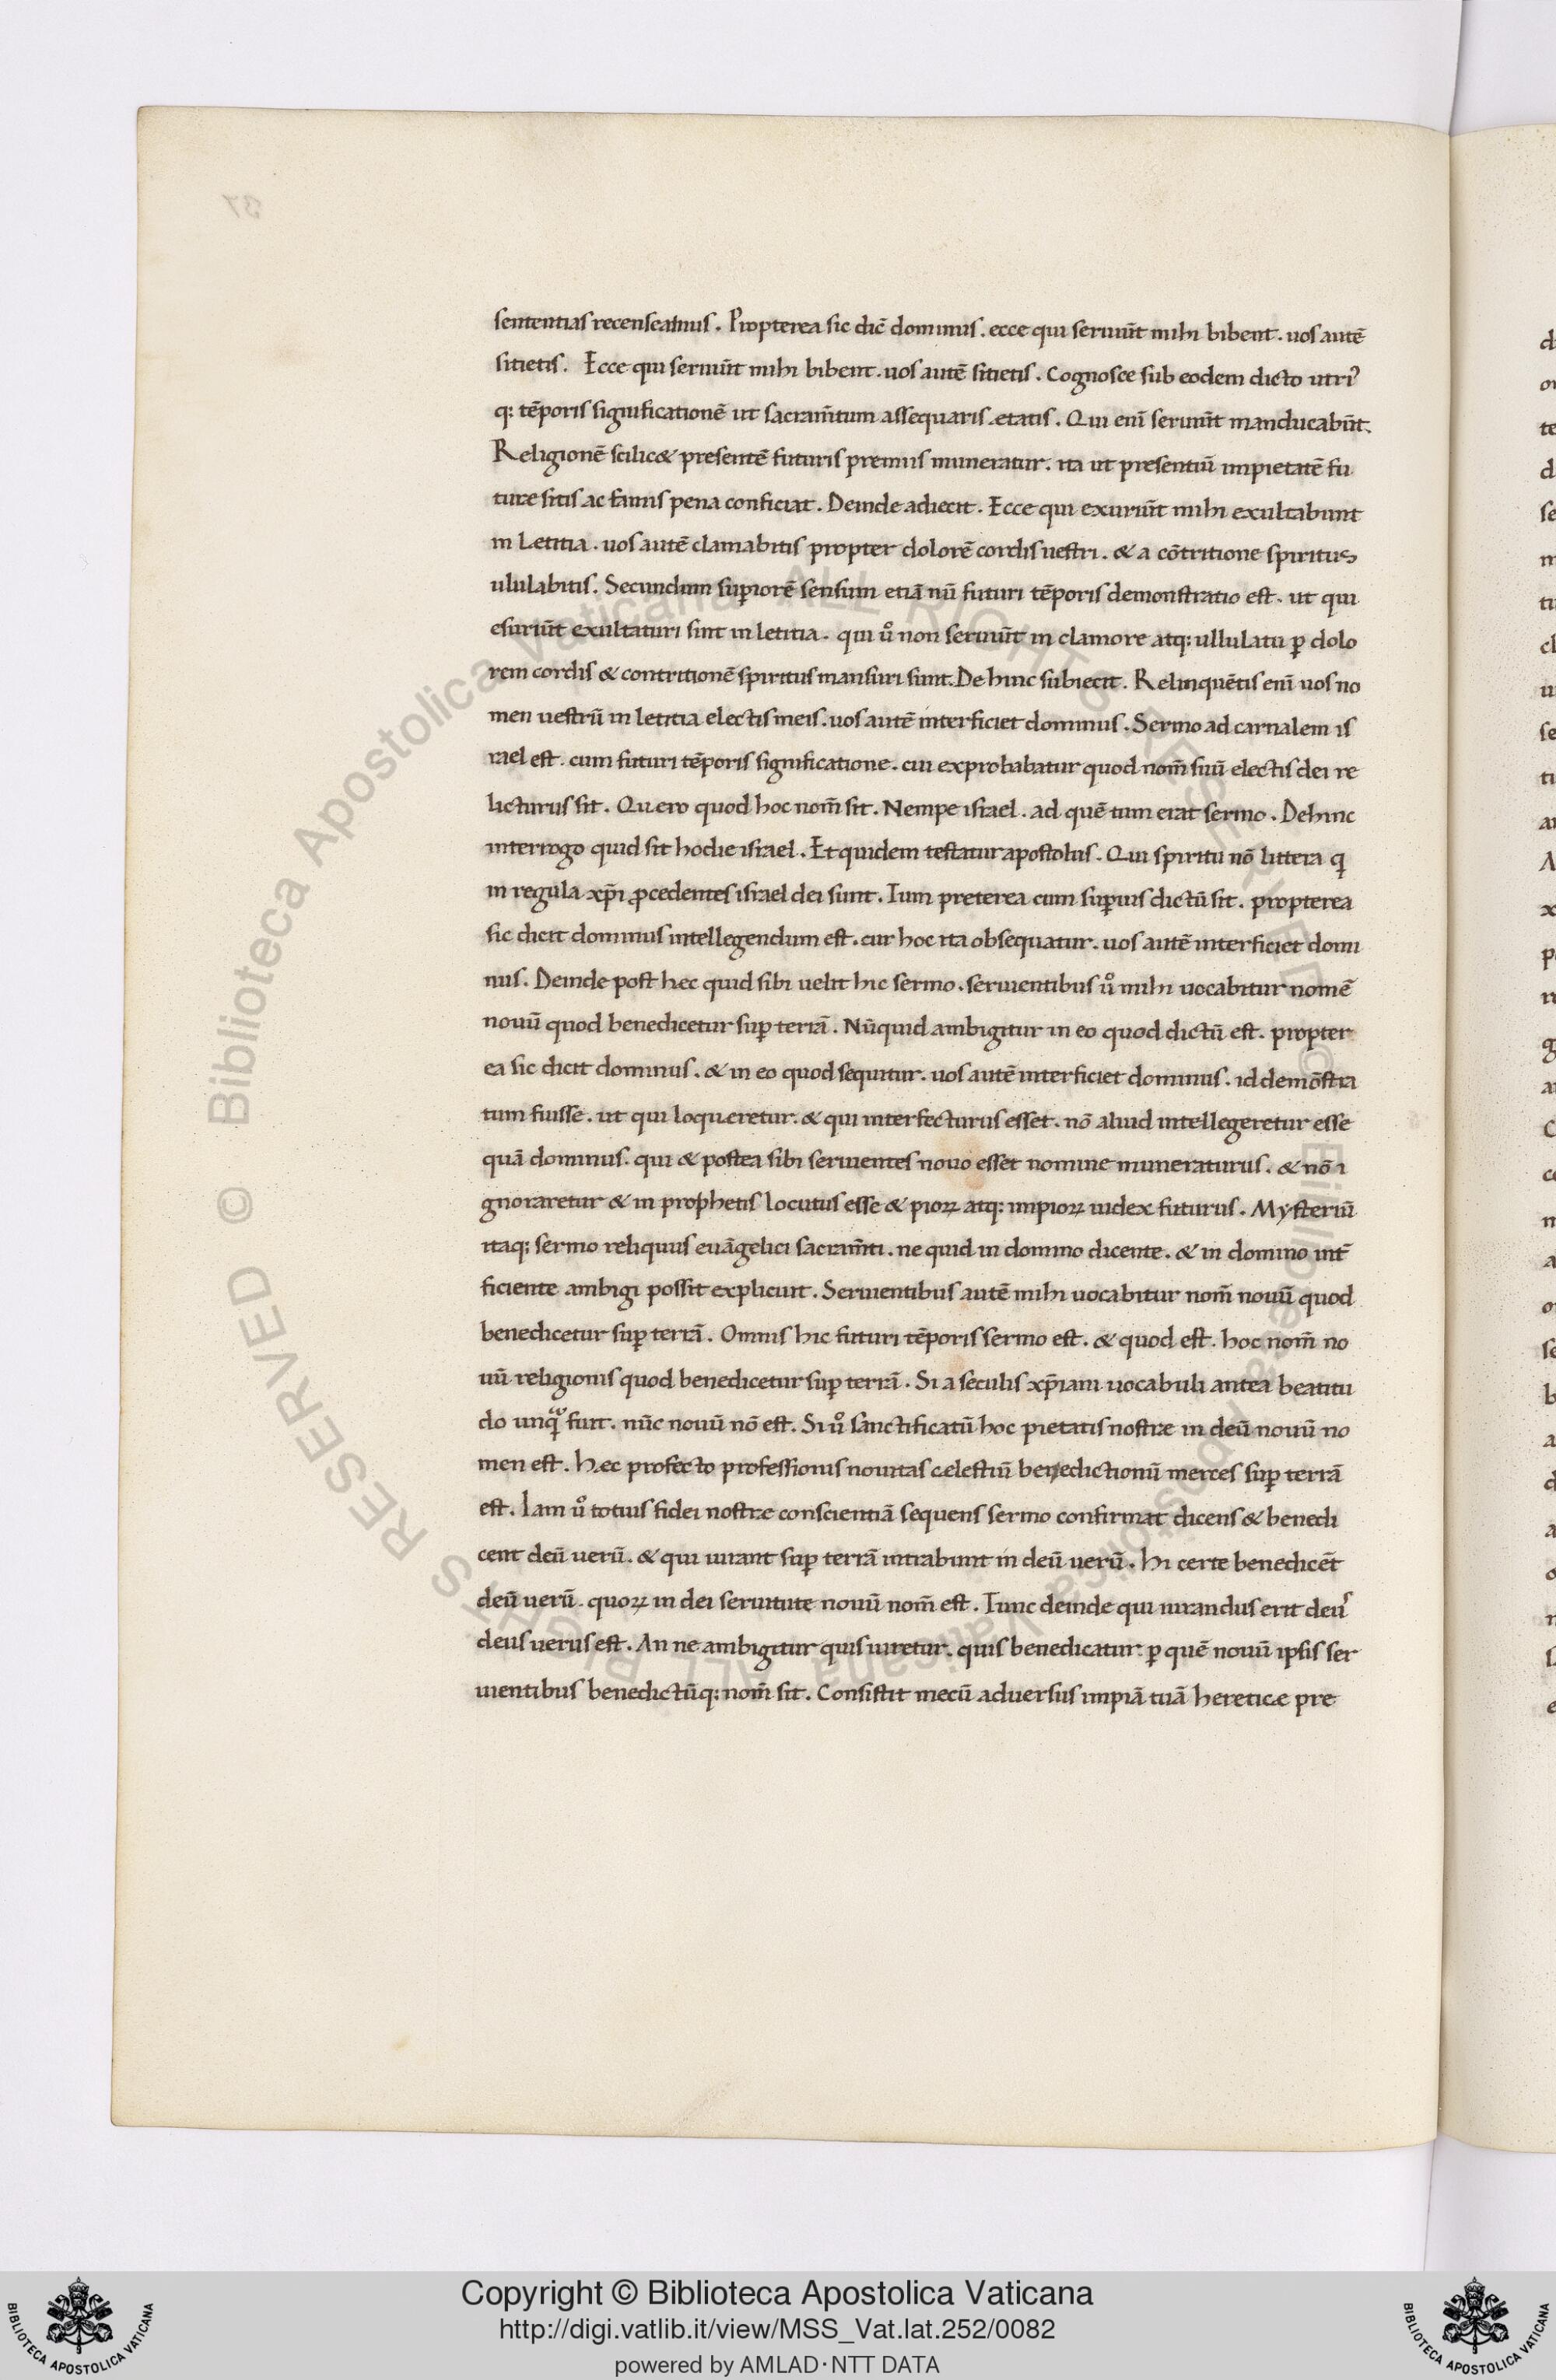 sententias recenseamus. Propterea sic dic̄ dominus. ecce qui seruiūt mihi bibent. uos autē
sitietis. Ecce qui seruiūt mihi bibent. uos autē sitietis. Cognosce sub eodem dicto utri᾽
q: tēporis significationē ut sacram̄tum assequaris ętatis. Qui eni᷑ seruiūt manducabūt.
Religionē scilic& presentē futuris premiis muneratur. ita ut presentiū impietatē fu
turę sitis ac famis pena conficiat. Deinde adiecit. Ecce qui exuriūt mihi exultabunt
in Letitia. uos autē clamabitis propter dolorē cordis uestri. & a cōtritione spiritus
ululabitis. Secundum suꝑiorē sensum etiā nū futuri tēporis demonstratio est. ut qui
esuriūt exultaturi sint in letitia. qui uͦ non seruiūt in clamore atq: ullulatu ꝑ dolo
rem cordis & contritionē spiritus mansuri sunt. De hinc subiecit. Relinquētis eni᷑ uos no
men uestrū in letitia electis meis. uos autē interficiet dominus. Sermo ad carnalem is
rael est. cum futuri tēporis significatione. cui exprobabatur quod nom̄ suū electis dei re
licturus sit. Quero quod hoc nom̄ sit. Nempe israel. ad quē tum erat sermo. Dehinc
interrogo quid sit hodie israel. Et quidem testatur apostolus. Qui spiritu nō littera q
in regula xp̄i ꝓcedentes israel dei sunt. Ium preterea cum suꝑius dictū sit. propterea
sic dicit dominus intellegendum est. cur hoc ita obsequatur. uos autē interficiet domi
nus. Deinde post hęc quid sibi uelit hic sermo. seruientibus uͦ mihi uocabitur nomē
nouū quod benedicetur suꝑ terrā. Nūquid ambigitur in eo quod dictū est. propter
ea sic dicit dominus. & in eo quod sequitur. uos autē interficiet dominus. id demōstra
tum fuisse. ut qui loqueretur. & qui interfecturus esset. nō aliud intellegeretur esse
quā dominus. qui & postea sibi seruientes nouo esset nomine muneraturus. & nō i
gnoraretur & in prophetis locutus esse & pioꝝ atq: impioꝝ iudex futurus. Mysteriū
itaq; sermo reliquus euāgelici sacram̄ti. ne quid in domino dicente. & in domino int̄
ficiente ambigi possit explicuit. Seruientibus autē mihi uocabitur nom̄ nouū quod
benedicetur suꝑ terrā. Omnis hic futuri tēporis sermo est. & quod est. hoc nom̄ no
uū religionis quod benedicetur suꝑ terrā. Si a seculis xp̄iani uocabuli antea beatitu
do unqᷓ fuit. nūc nouū nō est. Si uͦ sanctificatū hoc pietatis nostrę in deū nouū no
men est. Hęc profecto professionis nouitas cęlestiū benedictionū merces suꝑ terrā
est. Iam uͦ totius fidei nostrę conscientiā sequens sermo confirmat dicens & benedi
cent deū uerū. & qui iurant suꝑ terrā intrabunt in deū uerū. Hi certe benedicēt
deū uerū. quoꝝ in dei seruitute nouū nom̄ est. Tunc deinde qui iurandus erit deūˢ
deus uerus est. An ne ambigitur quis iuretur. quis benedicatur. ꝑ quē nouū ipsis ser
uientibus benedictūq: nom̄ sit. Consistit mecū aduersus impiā tuā hereticę pre
37
© Biblioteca Apostolica Vaticana ALL RIGHTS RESERVED
© Biblioteca Apostolica Vaticana ALL RIGHTS RESERVED
Copyright © Biblioteca Apostolica Vaticana
http://digi.vatlib.it/view/MSS_Vat.lat.252/0082
powered by AMLAD·NTT DATA
BIBLIOTECA APOSTOLICA VATICANA
BIBLIOTECA APOSTOLICA VATICANA